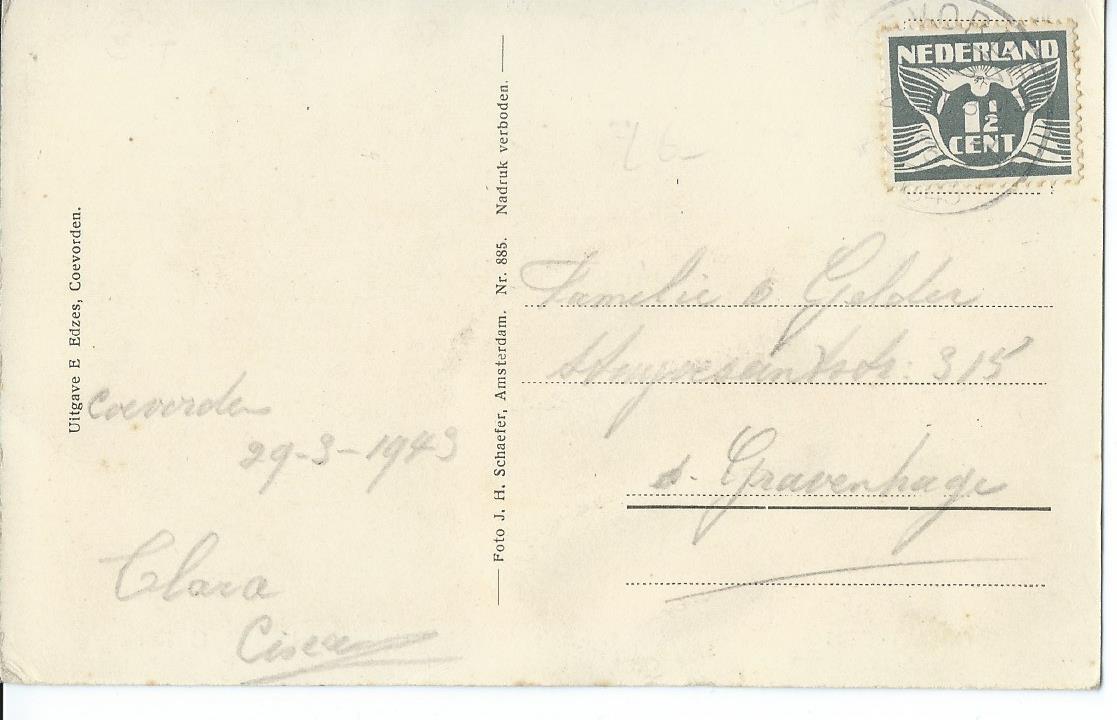 Uitgave E Edzes, Coevorden.
Coevorden
29-3-1943
Clara
Foto J. H. Schaefer, Amsterdam. Nr. 885. Nadruk verboden.
NEDERLAND
1½
CENT
76-
Familie d Gelder
Stuyvesantstr. 315
s. Gravenhage